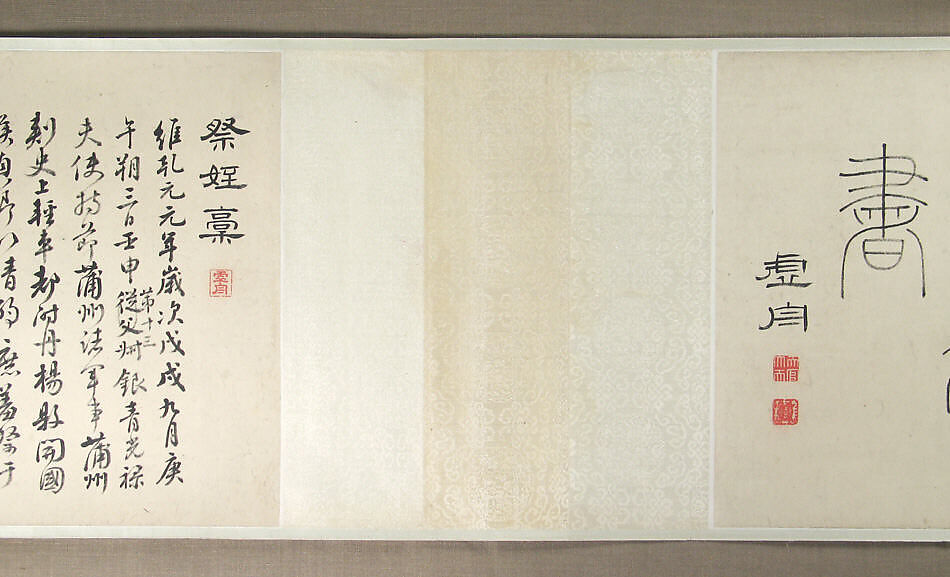 書
虛舟
祭姪稾
虛舟
維乾元元年歲次戊戌九月庚
午朔三日壬申第十三從父叔銀青光祿
夫使持節蒲州諸軍事蒲州
刺史上輕車都尉丹楊縣開國
侯真卿以清酌庶羞祭于